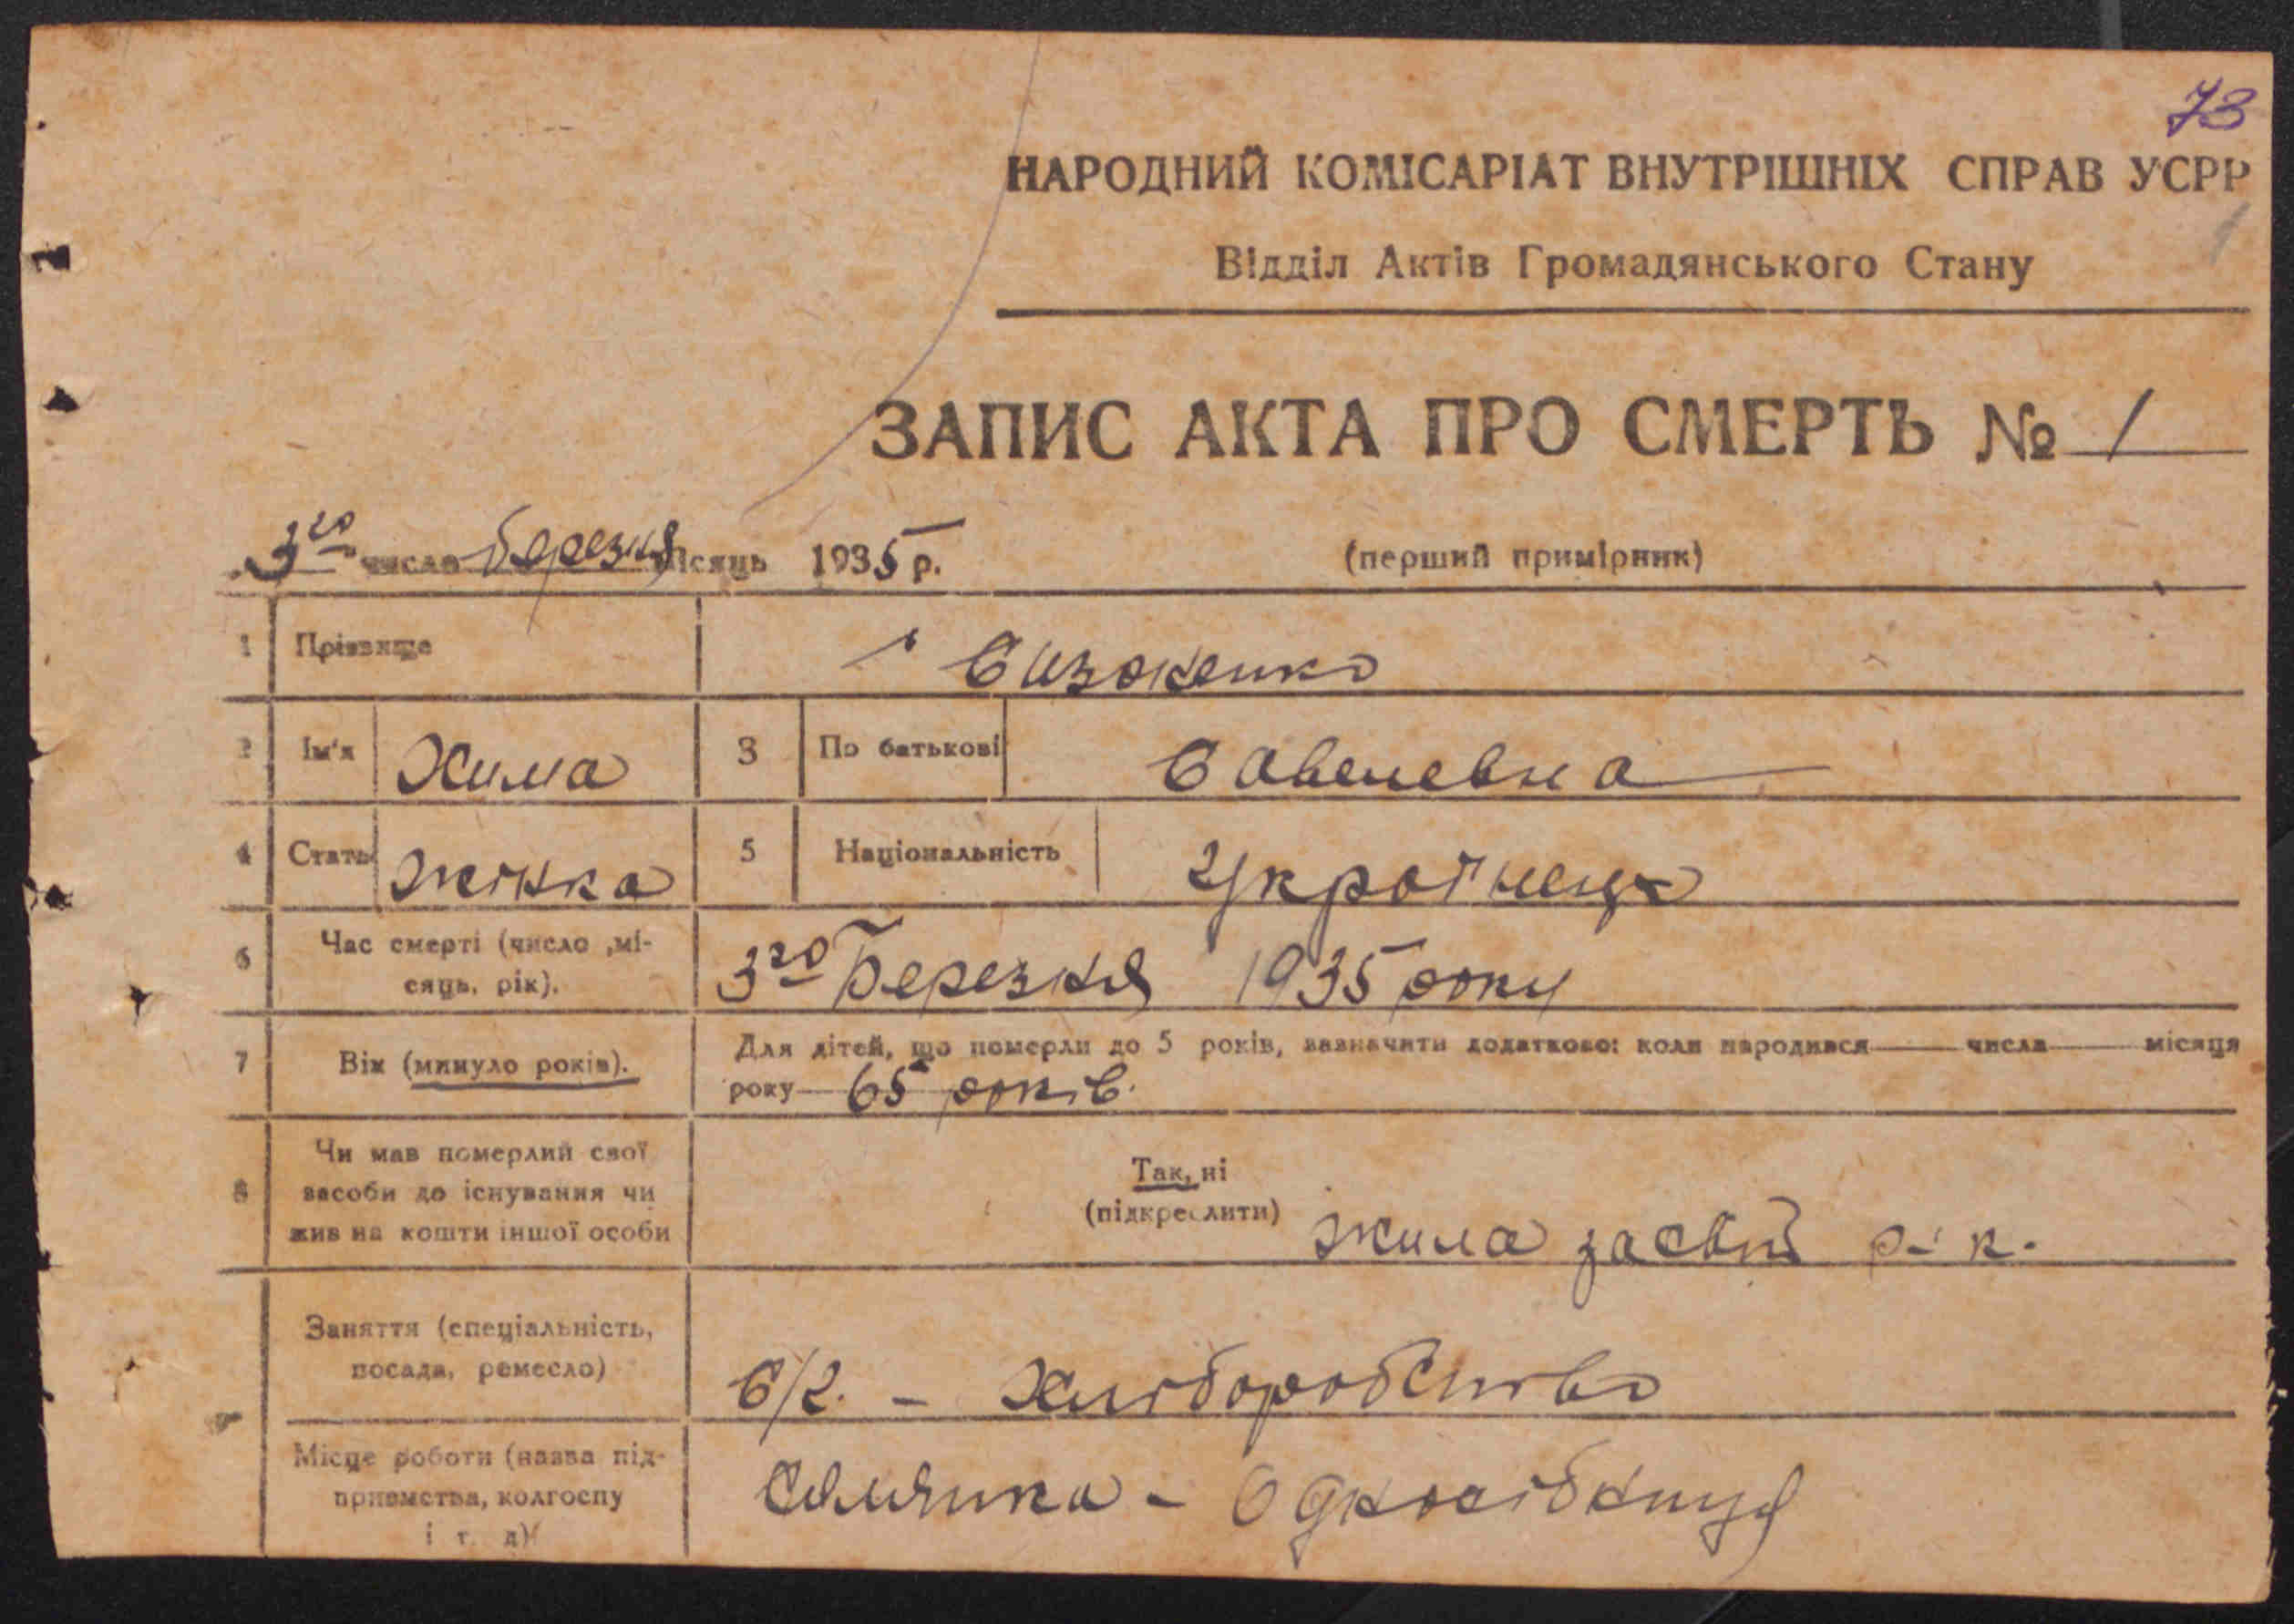 73
НАРОДНИЙ КОМІСАРІАТ ВНУТРІШНІХ СПРАВ УСРР
Відділ Актів Громадянського Стану
ЗАПИС АКТА ПРО СМЕРТЬ № 1
3го числа березня місяць 1935 р.
(перший примірник)
1 Прізвище Сизоненко
2 Ім'я Хима 3 По батькові Савелевна
4 Стать жінка 5 Національність Украінець
6 Час смерті (число ,мі-
сяць, рік).
3го Березня 1935 року
7 Вік (минуло років).
Для дітей, що померли до 5 років, зазначати додатково: коли народився числа місяця
року 65 років.
8 Чи мав померлий свої
засоби до існування чи
жив на кошти іншої особи
Так, ні
(підкреслити) жила за свій
Заняття (спеціальність,
посада, ремесло)
С/г. - Хліборобство
Місце роботи (назва під-
приємства, колгоспу
і т. д)
Селянка - Одноосібниця